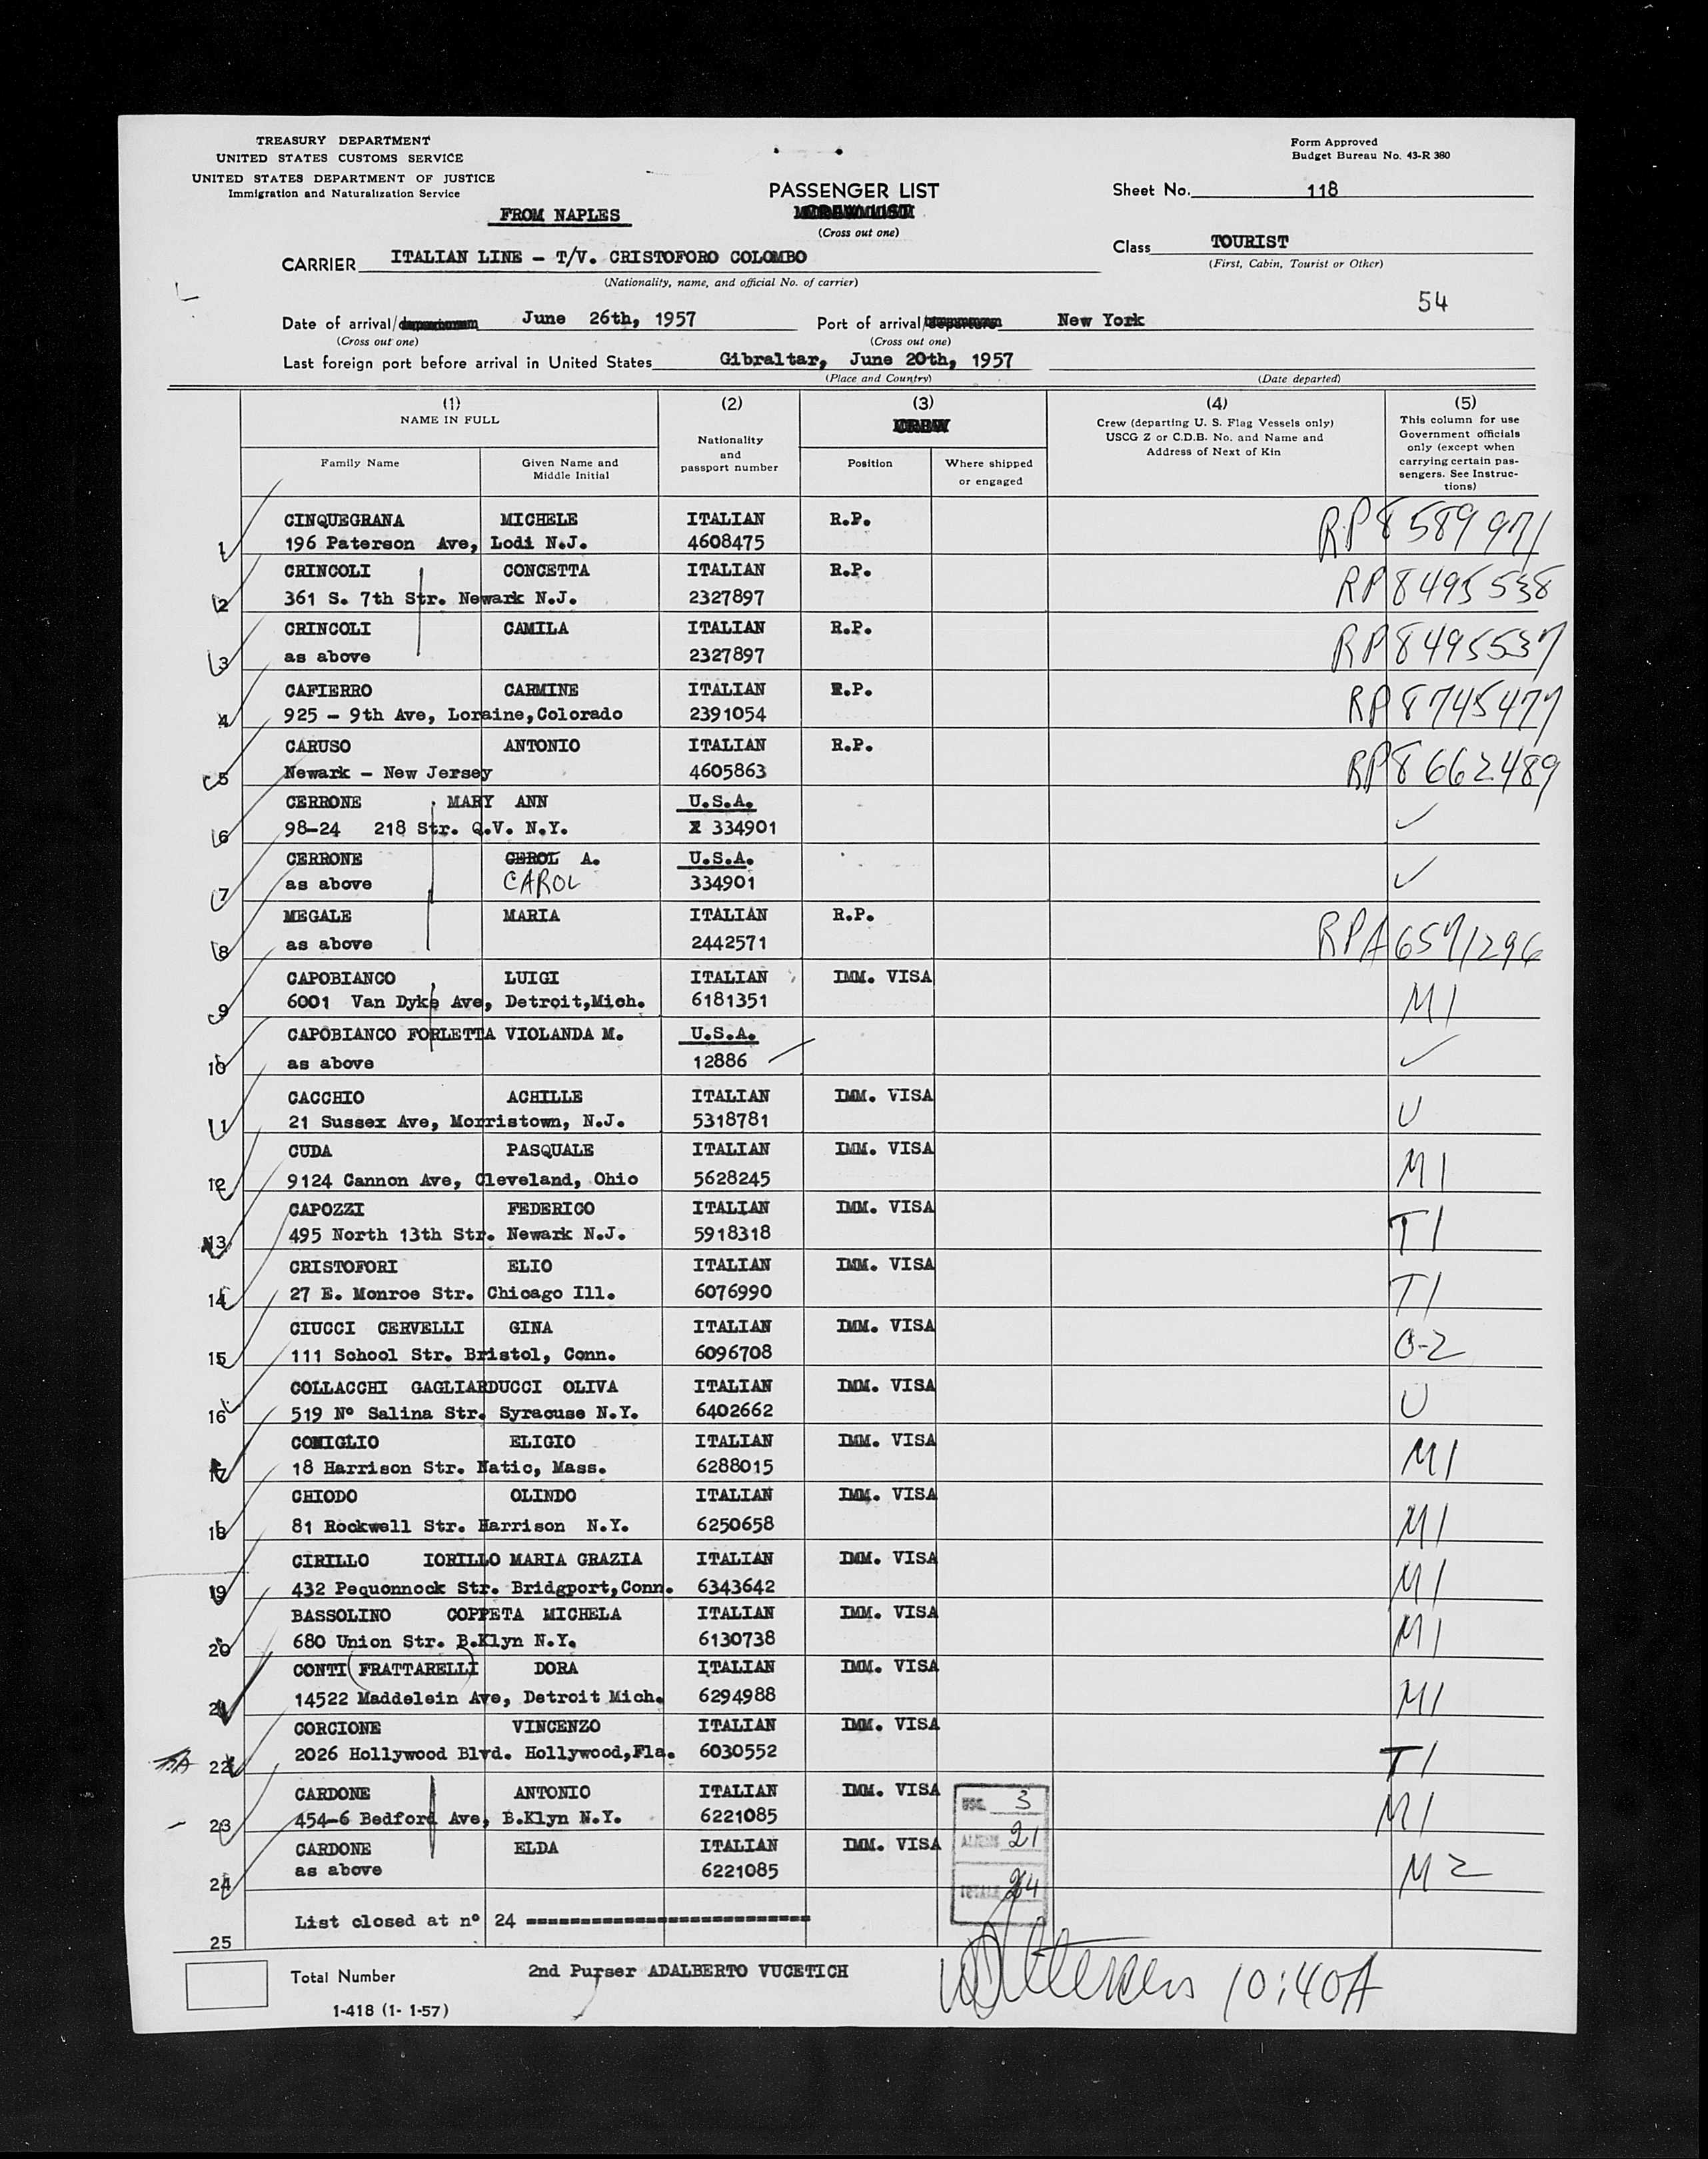 TREASURY DEPARTMENT
UNITED STATES CUSTOMS SERVICE
UNITED STATES DEPARTMENT OF JUSTICE
Immigration and Naturalization Service
Form Approved
Budget Bureau No. 43-R 380
FROM NAPLES
PASSENGER LIST
(Cross out one)
Sheet No. 118
Class TOURIST
(First, Cabin, Tourist or Other)
CARRIER ITALIAN LINE - T/V. CRISTOFORO COLOMBO
(Nationality, name, and official No. of carrier)
54
Date of arrival/ June 26th, 1957 Port of arrival/ New York
(Cross out one) (Cross out one)
Last foreign port before arrival in United States Gibraltar, June 20th, 1957
(Place and Country) (Date departed)
(1) (2) (3) (4) (5)
NAME IN FULL
Family Name
Given Name and
Middle Initial
Nationality
and
passport number
CREW
Position
Where shipped
or engaged
Crew (departing U. S. Flag Vessels only)
USCG Z or C.D.B. No. and Name and
Address of Next of Kin
This column for use
Government officials
only (except when
carrying certain pas-
sengers. See Instruc-
tions)
CINQUEGRANA MICHELE ITALIAN R.P. RP8589971
1 196 Paterson Ave, Lodi N.J. 4608475
CRINCOLI CONCETTA ITALIAN R.P. RP8495538
2 361 S. 7th Str. Newark N.J. 2327897
CRINCOLI CAMILA ITALIAN R.P. RP8495537
3 as above 2327897
CAFIERRO CARMINE ITALIAN R.P. RP8745477
4 925 - 9th Ave, Loraine,Colorado 2391054
CARUSO ANTONIO ITALIAN R.P. RP8662489
5 Newark - New Jersey 4605863
CERRONE MARY ANN U.S.A.
6 98-24 218 Str. Q.V. N.Y. 334901
CERRONE GEROL A. U.S.A.
7 as above CAROL 334901
MEGALE MARIA ITALIAN R.P. RPA6571296
8 as above 2442571
CAPOBIANCO LUIGI ITALIAN IMM. VISA M1
9 6001 Van Dyke Ave, Detroit,Mich. 6181351
CAPOBIANCO FORLETTA VIOLANDA M. U.S.A.
10 as above 12886
CACCHIO ACHILLE ITALIAN IMM. VISA U
11 21 Sussex Ave, Morristown, N.J. 5318781
CUDA PASQUALE ITALIAN IMM. VISA M1
12 9124 Cannon Ave, Cleveland, Ohio 5628245
CAPOZZI FEDERICO ITALIAN IMM. VISA T1
13 495 North 13th Str. Newark N.J. 5918318
CRISTOFORI ELIO ITALIAN IMM. VISA T1
14 27 E. Monroe Str. Chicago Ill. 6076990
CIUCCI CERVELLI GINA ITALIAN IMM. VISA O-2
15 111 School Str. Bristol, Conn. 6096708
COLLACCHI GAGLIARDUCCI OLIVA ITALIAN IMM. VISA U
16 519 Nº Salina Str. Syracuse N.Y. 6402662
COMIGLIO ELIGIO ITALIAN IMM. VISA M1
17 18 Harrison Str. Natic, Mass. 6288015
CHIODO OLINDO ITALIAN IMM. VISA M1
18 81 Rockwell Str. Harrison N.Y. 6250658
CIRILLO IORILLO MARIA GRAZIA ITALIAN IMM. VISA M1
19 432 Pequonnock Str. Bridgport,Conn. 6343642
BASSOLINO COPPETA MICHELA ITALIAN IMM. VISA M1
20 680 Union Str. B.Klyn N.Y. 6130738
CONTI (FRATTARELLI) DORA ITALIAN IMM. VISA M1
21 14522 Maddelein Ave, Detroit Mich. 6294988
CORCIONE VINCENZO ITALIAN IMM. VISA T1
22 2026 Hollywood Blvd. Hollywood,Fla. 6030552
CARDONE ANTONIO ITALIAN IMM. VISA M1
23 454-6 Bedford Ave, B.Klyn N.Y. 6221085
CARDONE ELDA ITALIAN IMM. VISA M2
24 as above 6221085
USC. 3
ALIENS 21
TOTALE 24
List closed at nº 24 ----------------------------
25
Total Number 2nd Purser ADALBERTO VUCETICH 10:40A
1-418 (1- 1-57)